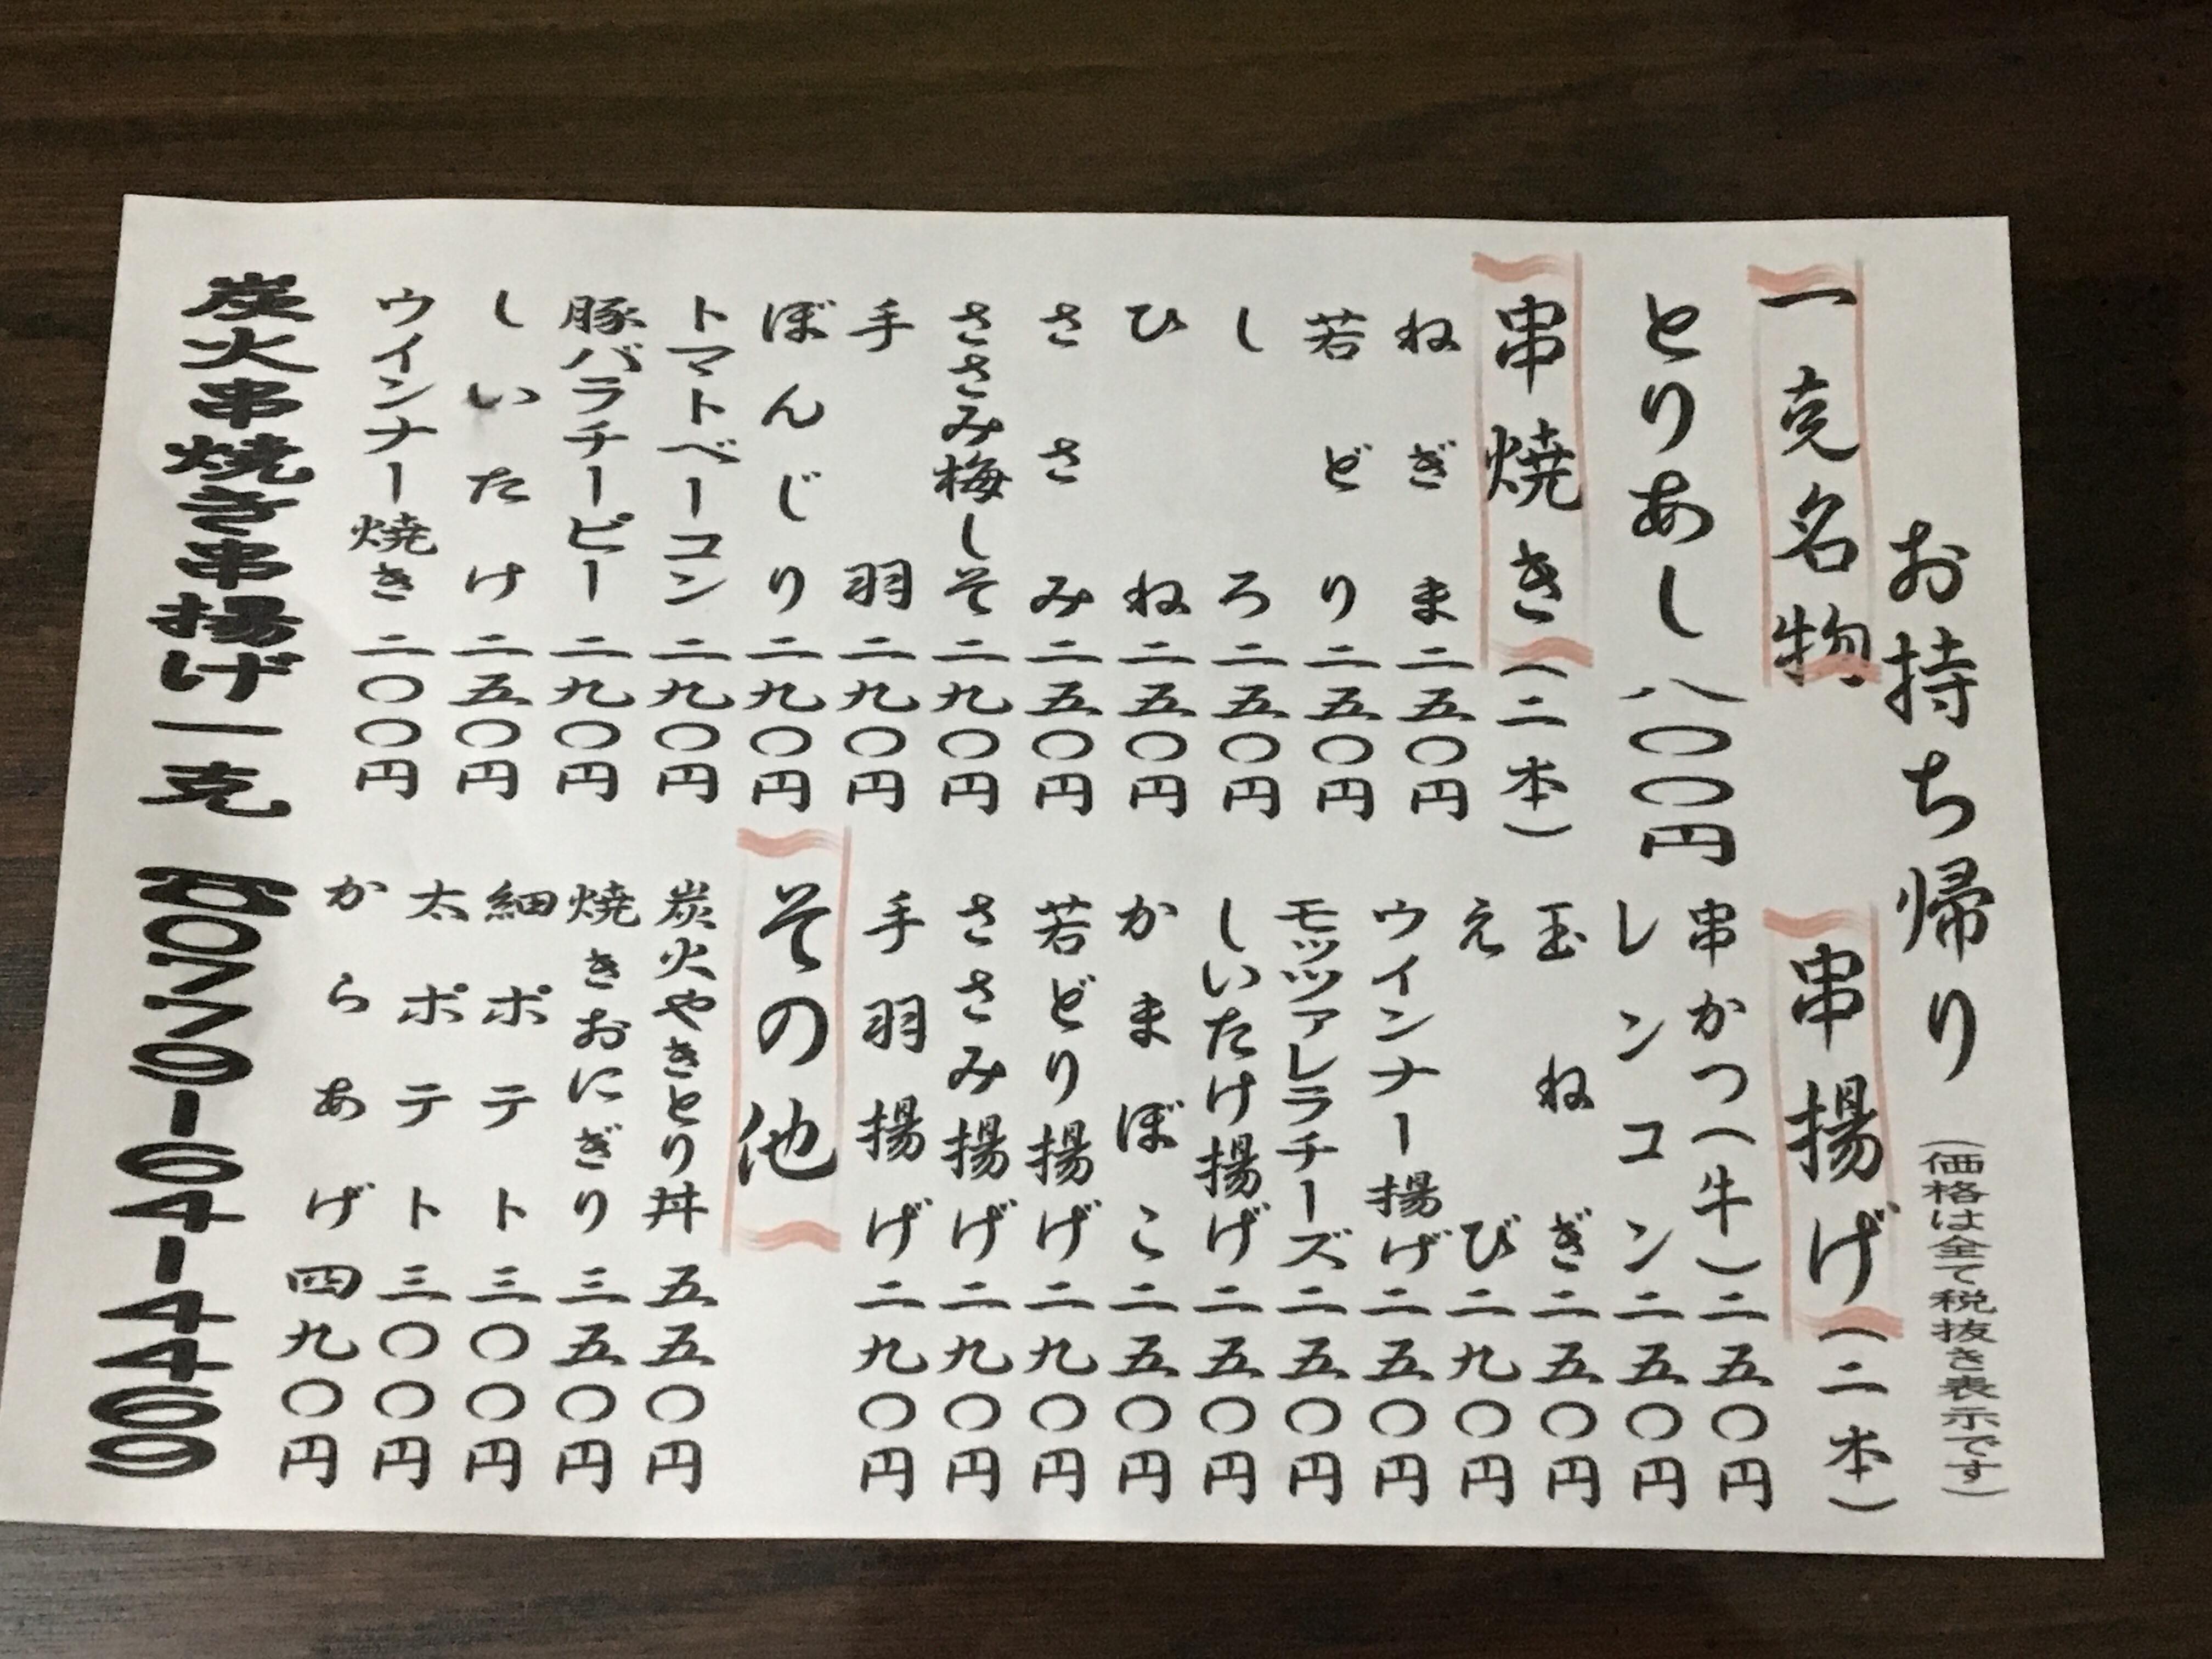 お持ち帰り（価格は全て税抜き表示です）
一克名物
とりあし 八〇〇円
串焼き（二本）
ねぎま 二五〇円
若どり 二五〇円
しろ 二五〇円
ひね 二五〇円
ささみ 二五〇円
ささみ梅しそ 二九〇円
手羽 二九〇円
ぼんじり 二九〇円
トマトベーコン 二九〇円
豚バラチーピー 二九〇円
しいたけ 二五〇円
ウインナー焼き 二〇〇円
串揚げ（二本）
串かつ（牛）二五〇円
レンコン 二五〇円
玉ねぎ 二五〇円
えび 二九〇円
ウインナー揚げ 二五〇円
モッツァレラチーズ 二五〇円
しいたけ揚げ 二五〇円
かまぼこ 二五〇円
若どり揚げ 二九〇円
ささみ揚げ 二九〇円
手羽揚げ 二九〇円
その他
炭火やきとり丼 五五〇円
焼きおにぎり 三五〇円
細ポテト 三〇〇円
太ポテト 三〇〇円
からあげ 四九〇円
炭火串焼き串揚げ一克 ☎0779-64-4469